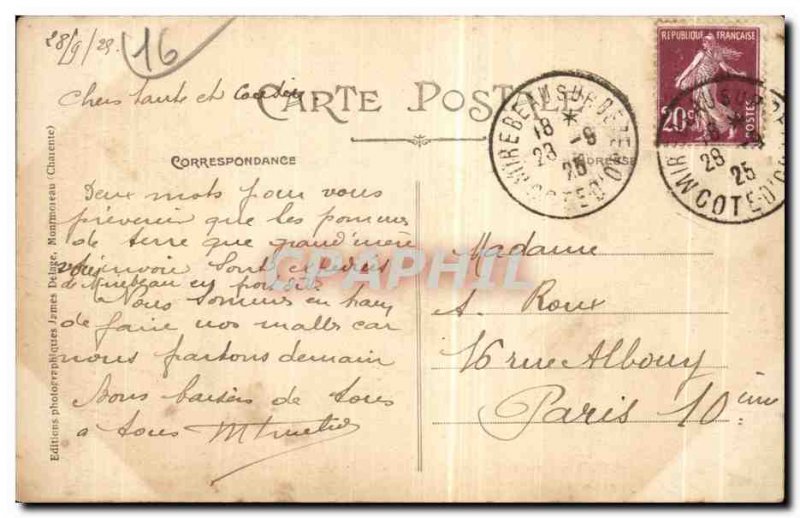 28/9/25
16
Chers tante et Cousin
CARTE POSTALE
CORRESPONDANCE
ADRESSE
Deux mots pour vous
prévenir que les pommes
de terre que grand'mère
envoie sont expédiées
de Mirebeau en port dû
Nous sommes en train
de faire nos malles car
nous partons demain
Bons baisers de tous
a tous
Madame
A. Roux
16 rue Albouy
Paris 10ème
REPUBLIQUE FRANÇAISE
20c
POSTES
MIREBEAU SUR BEZE
18 *
28 -9
25
COTE-D'OR
28 -9
25
COTE-D'OR
Editions photographiques James Delage, Montmoreau (Charente)
CPAPHIL.COM